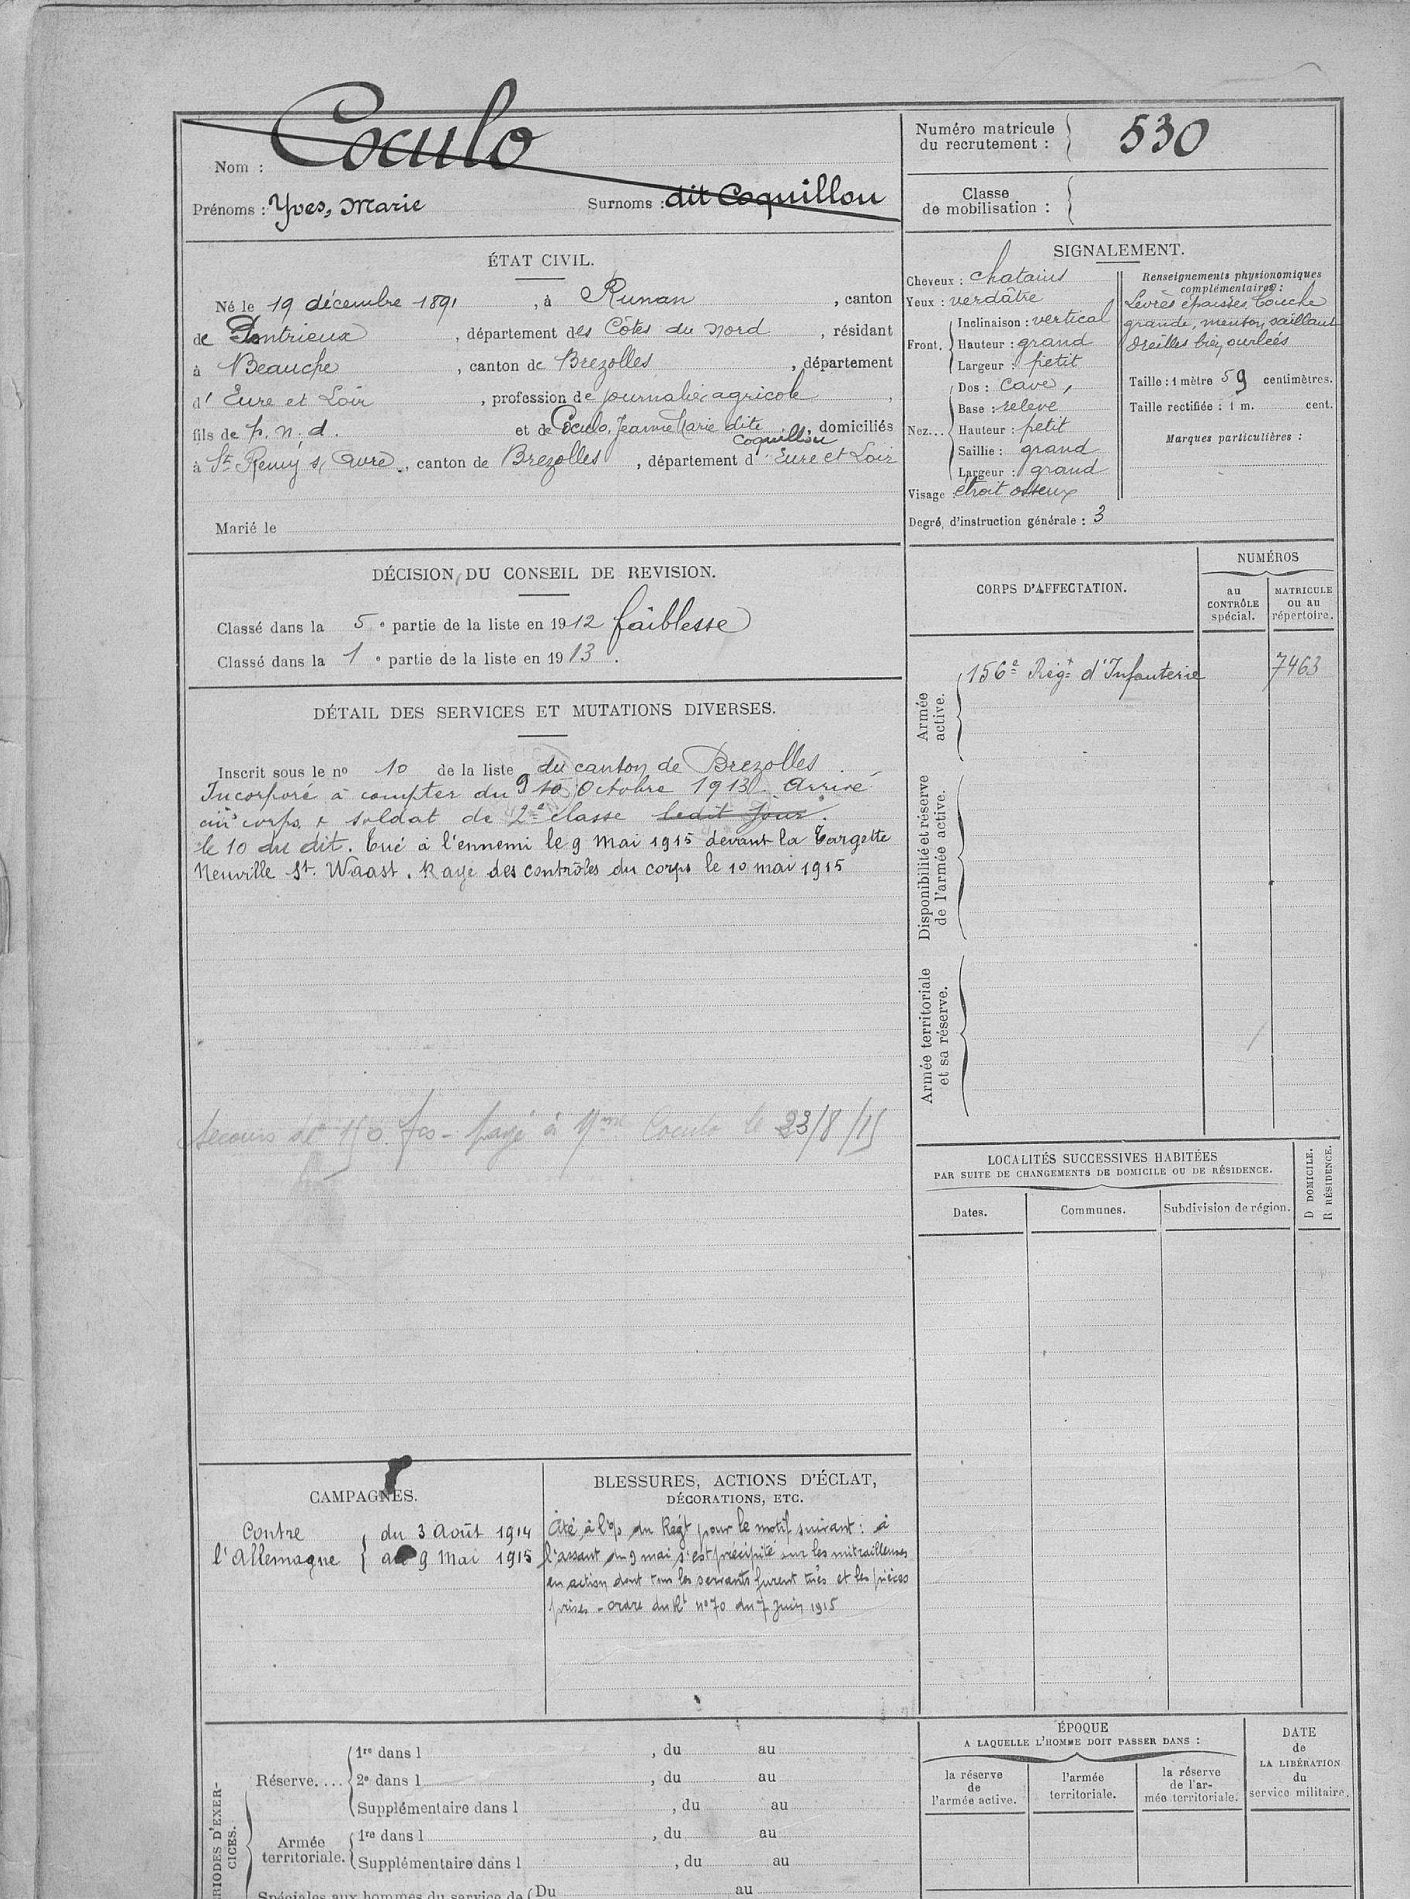 Nom : Coculo
Prénoms : Yves, Marie Surnoms : dit Coquillou
Numéro matricule du recrutement : 530
Classe de mobilisation :
ÉTAT CIVIL.
Né le 19 décembre 1891, à Runan, canton
de Pontrieux, département des Côtes du Nord, résidant
à Beauche, canton de Brezolles, département
d'Eure et Loir, profession de journalier agricole,
fils de p. n. d. et de Coculo, Jeanne Marie dite Coquillou, domiciliés
à St Remy s/ Avre, canton de Brezolles, département d'Eure et Loir
Marié le
SIGNALEMENT.
Cheveux : chatains
Yeux : verdâtre
Front. Inclinaison : vertical
Hauteur : grand
Largeur : petit
Nez... Dos : cave,
Base : relevé
Hauteur : petit
Saillie : grand
Largeur : grand
Visage : étroit osseux
Degré d'instruction générale : 3
Renseignements physionomiques
complémentaires :
Levres épaisses bouche
grande, menton saillant
Oreilles bien ourlées
Taille : 1 mètre 59 centimètres.
Taille rectifiée : 1 m. cent.
Marques particulières :
DÉCISION DU CONSEIL DE REVISION.
Classé dans la 5e partie de la liste en 1912 faiblesse
Classé dans la 1e partie de la liste en 1913.
DÉTAIL DES SERVICES ET MUTATIONS DIVERSES.
Inscrit sous le no 10 de la liste du canton de Brezolles.
Incorporé à compter du 9 10 Octobre 1913. Arrivé
au corps & soldat de 2e classe ledit jour.
le 10 du dit. Tué à l'ennemi le 9 mai 1915 devant la Targette
Neuville St. Waast. Rayé des contrôles du corps le 10 mai 1915
Secours de 150 fcs - payé à Mme Coculo le 23/8/15
CORPS D'AFFECTATION.
NUMÉROS
au
CONTRÔLE
spécial.
MATRICULE
ou au
répertoire.
Armée
active.
156e Régt d'Infanterie 7463
Disponibilité et réserve
de l'armée active.
Armée territoriale
et sa réserve.
LOCALITÉS SUCCESSIVES HABITÉES
PAR SUITE DE CHANGEMENTS DE DOMICILE OU DE RÉSIDENCE.
Dates. Communes. Subdivision de région.
D DOMICILE.
R RÉSIDENCE.
CAMPAGNES.
Contre
l'Allemagne
du 3 Août 1914
au 9 Mai 1915
BLESSURES, ACTIONS D'ÉCLAT,
DÉCORATIONS, ETC.
Cité à l'o/ du Régt pour le motif suivant : à
l'assaut du 9 mai s'est précipité sur les mitrailleuses
en action dont tous les servants furent tués et les pièces
prises - ordre du Rt no 70 du 7 Juin 1915
PÉRIODES D'EXER-
CICES.
Réserve....
1re dans l , du au
2e dans l , du au
Supplémentaire dans l , du au
Armée
territoriale.
1re dans l , du au
Supplémentaire dans l , du au
Spéciales aux hommes du service de Du au
ÉPOQUE
A LAQUELLE L'HOMME DOIT PASSER DANS :
la réserve
de
l'armée active.
l'armée
territoriale.
la réserve
de l'ar-
mée territoriale.
DATE
de
LA LIBÉRATION
du
service militaire.